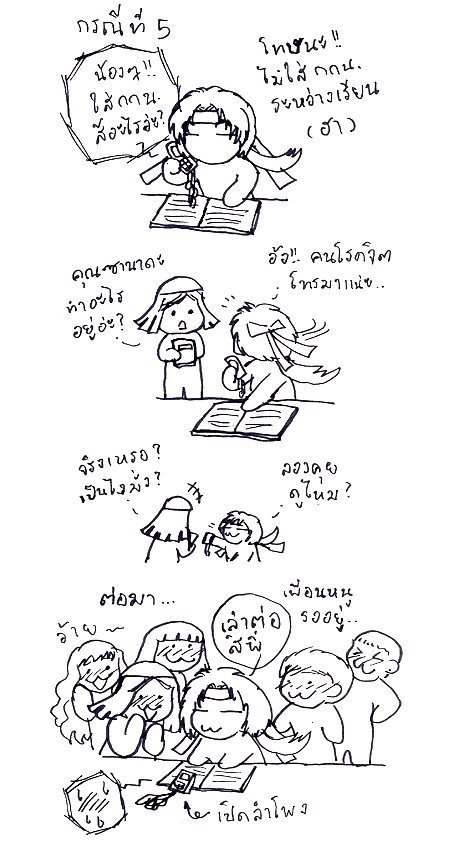 กรณีที่ 5
น้องๆ!!
ใส่ กกน.
สีอะไรอ่ะ?
โทษนะ!!
ไม่ใส่ กกน.
ระหว่างเรียน
(ฮา)
คุณซานาดะ
ทำอะไร
อยู่อ่ะ?
อ้อ!! คนโรคจิต
โทรมาแน่ะ..
จริงเหรอ?
เป็นไงมั่ง?
ลองคุย
ดูไหม?
ต่อมา...
ว้าย~
เล่าต่อ
สิพี่
เพื่อนหนู
รออยู่..
เปิดลำโพง